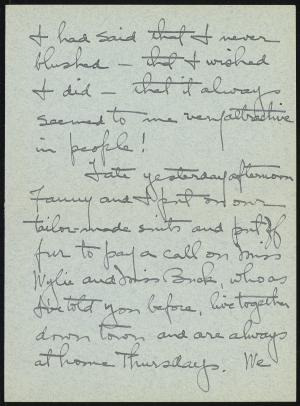 I had said that I never
blushed — that I wished
I did — that it always
seemed to me very attractive
in people!
Late yesterday afternoon
Fanny and I put on our
tailor-made suits and put off
fur to pay a call on Miss
Wylie and Miss Brok, who as
I've told you before, live together
down town and are always
at home Thursdays. We